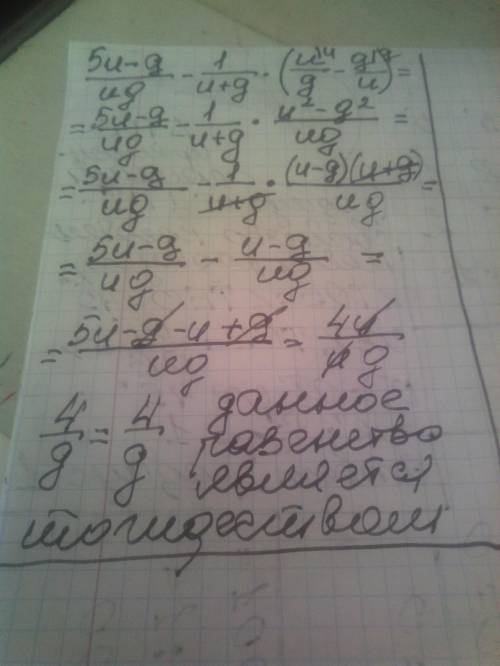 (5u-g)/(ug) - 1/(u+g) · (u^{\u}/g - g^{\g}/u) =
= (5u-g)/(ug) - 1/(u+g) · (u²-g²)/(ug) =
= (5u-g)/(ug) - 1/(u+g) · ((u-g)(u+g))/(ug) =
= (5u-g)/(ug) - (u-g)/(ug) =
= (5u-g-u+g)/(ug) = 4u/(ug)
4/g = 4/g данное
равенство
является
тождеством